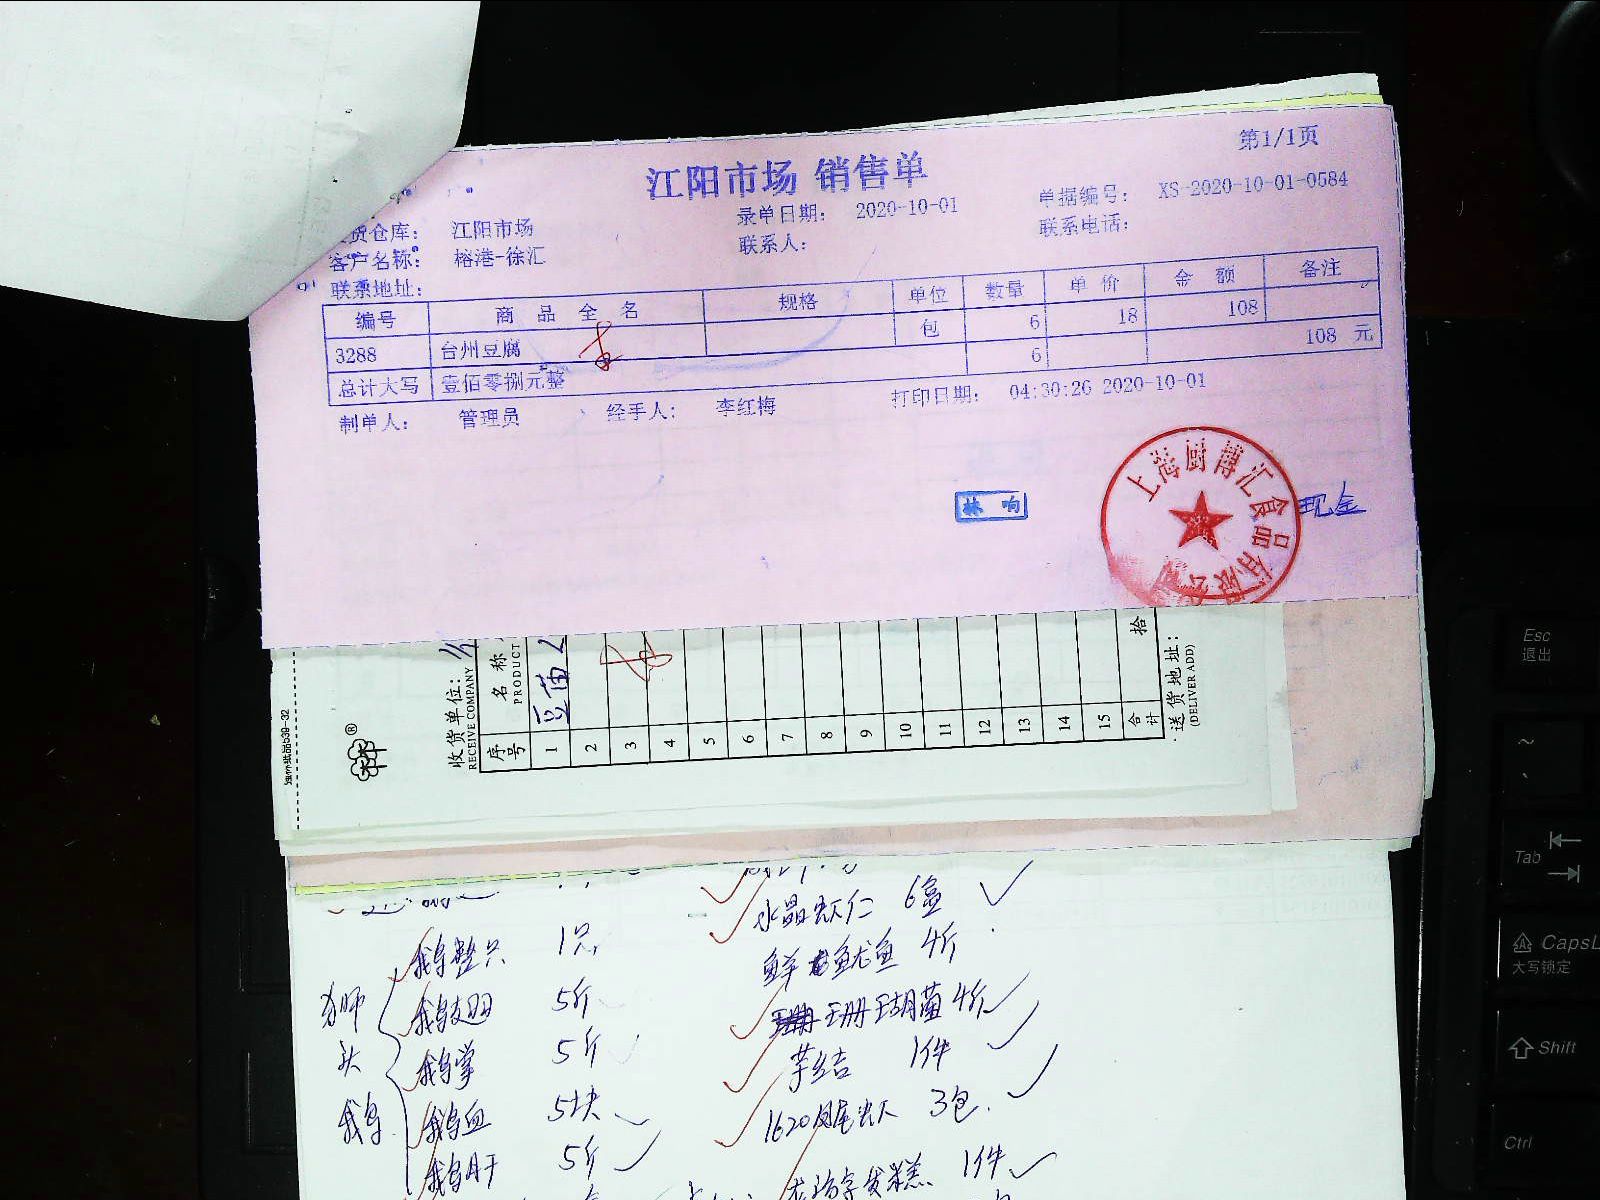 第1/1页
江阳市场 销售单
录单日期: 2020-10-01
单据编号: XS-2020-10-01-0584
货仓库: 江阳市场
联系人:
联系电话:
客户名称: 榕港-徐汇
联系地址:
编号 商 品 全 名 规格 单位 数量 单 价 金 额 备注
3288 台州豆腐 包 6 18 108
总计大写 壹佰零捌元整 6 108 元
制单人: 管理员 经手人: 李红梅 打印日期: 04:30:26 2020-10-01
林 响
上海厨博汇食品有限公
现金
收货单位:
RECEIVE COMPANY
序号 名 称
PRODUCT
1 豆苗
2
3
4
5
6
7
8
9
10
11
12
13
14
15
合计 拾
送货地址:
(DELIVER ADD)
水晶虾仁 6盒
鹅整只 1只
鲜鱿鱼 4斤
狮头鹅
鹅翅 5斤
珊瑚菌 4斤
鹅掌 5斤
芋结 1件
鹅血 5块
1620凤尾虾 3包
鹅肝 5斤
发糕 1件
Esc
退出
~
Tab
CapsL
大写锁定
Shift
Ctrl